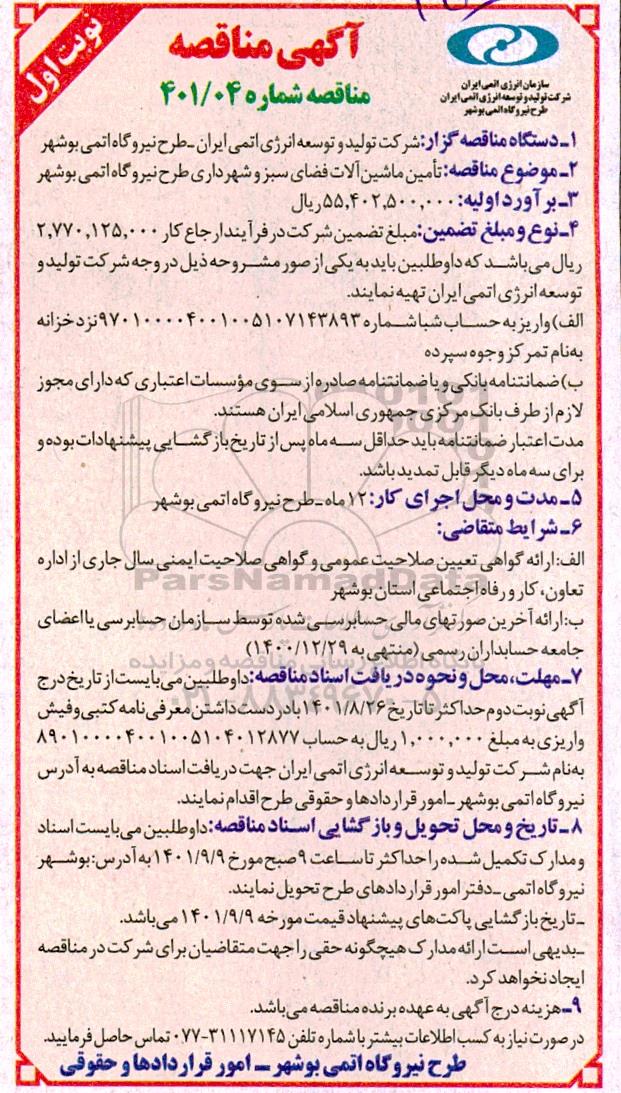 نوبت اول
سازمان انرژی اتمی ایران
شرکت تولید و توسعه انرژی اتمی ایران
طرح نیروگاه اتمی بوشهر
آگهی مناقصه
مناقصه شماره ۴۰۱/۰۴
۱ـ دستگاه مناقصه گزار: شرکت تولید و توسعه انرژی اتمی ایران ـ طرح نیروگاه اتمی بوشهر
۲ـ موضوع مناقصه: تأمین ماشین آلات فضای سبز و شهرداری طرح نیروگاه اتمی بوشهر
۳ـ برآورد اولیه: ۵۵,۴۰۲,۵۰۰,۰۰۰ ریال
۴ـ نوع و مبلغ تضمین: مبلغ تضمین شرکت در فرآیند ارجاع کار ۲,۷۷۰,۱۲۵,۰۰۰
ریال می باشد که داوطلبین باید به یکی از صور مشروحه ذیل در وجه شرکت تولید و
توسعه انرژی اتمی ایران تهیه نمایند.
الف) واریز به حساب شبا شماره ۹۷۰۱۰۰۰۰۴۰۰۱۰۰۵۱۰۷۱۴۳۸۹۳ نزد خزانه
به نام تمرکز وجوه سپرده
ب) ضمانتنامه بانکی و یا ضمانتنامه صادره از سوی مؤسسات اعتباری که دارای مجوز
لازم از طرف بانک مرکزی جمهوری اسلامی ایران هستند.
مدت اعتبار ضمانتنامه باید حداقل سه ماه پس از تاریخ بازگشایی پیشنهادات بوده و
برای سه ماه دیگر قابل تمدید باشد.
۵ـ مدت و محل اجرای کار: ۱۲ ماه ـ طرح نیروگاه اتمی بوشهر
۶ـ شرایط متقاضی:
الف: ارائه گواهی تعیین صلاحیت عمومی و گواهی صلاحیت ایمنی سال جاری از اداره
تعاون، کار و رفاه اجتماعی استان بوشهر
ParsNamadData
ب: ارائه آخرین صورتهای مالی حسابرسی شده توسط سازمان حسابرسی یا اعضای
جامعه حسابداران رسمی (منتهی به ۱۴۰۰/۱۲/۲۹)
پایگاه اطلاع رسانی مناقصه و مزایده
۷ـ مهلت، محل و نحوه دریافت اسناد مناقصه: داوطلبین می بایست از تاریخ درج
آگهی نوبت دوم حداکثر تا تاریخ ۱۴۰۱/۸/۲۶ با در دست داشتن معرفی نامه کتبی و فیش
واریزی به مبلغ ۱,۰۰۰,۰۰۰ ریال به حساب ۸۹۰۱۰۰۰۰۴۰۰۱۰۰۵۱۰۴۰۱۲۸۷۷
به نام شرکت تولید و توسعه انرژی اتمی ایران جهت دریافت اسناد مناقصه به آدرس
نیروگاه اتمی بوشهر ـ امور قراردادها و حقوقی طرح اقدام نمایند.
۸ـ تاریخ و محل تحویل و بازگشایی اسناد مناقصه: داوطلبین می بایست اسناد
و مدارک تکمیل شده را حداکثر تا ساعت ۹ صبح مورخ ۱۴۰۱/۹/۹ به آدرس: بوشهر
نیروگاه اتمی ـ دفتر امور قراردادهای طرح تحویل نمایند.
ـ تاریخ بازگشایی پاکت های پیشنهاد قیمت مورخه ۱۴۰۱/۹/۹ می باشد.
ـ بدیهی است ارائه مدارک هیچگونه حقی را جهت متقاضیان برای شرکت در مناقصه
ایجاد نخواهد کرد.
۹ـ هزینه درج آگهی به عهده برنده مناقصه می باشد.
در صورت نیاز به کسب اطلاعات بیشتر با شماره تلفن ۳۱۱۱۷۱۴۵-۰۷۷ تماس حاصل فرمایید.
طرح نیروگاه اتمی بوشهر ـ امور قراردادها و حقوقی